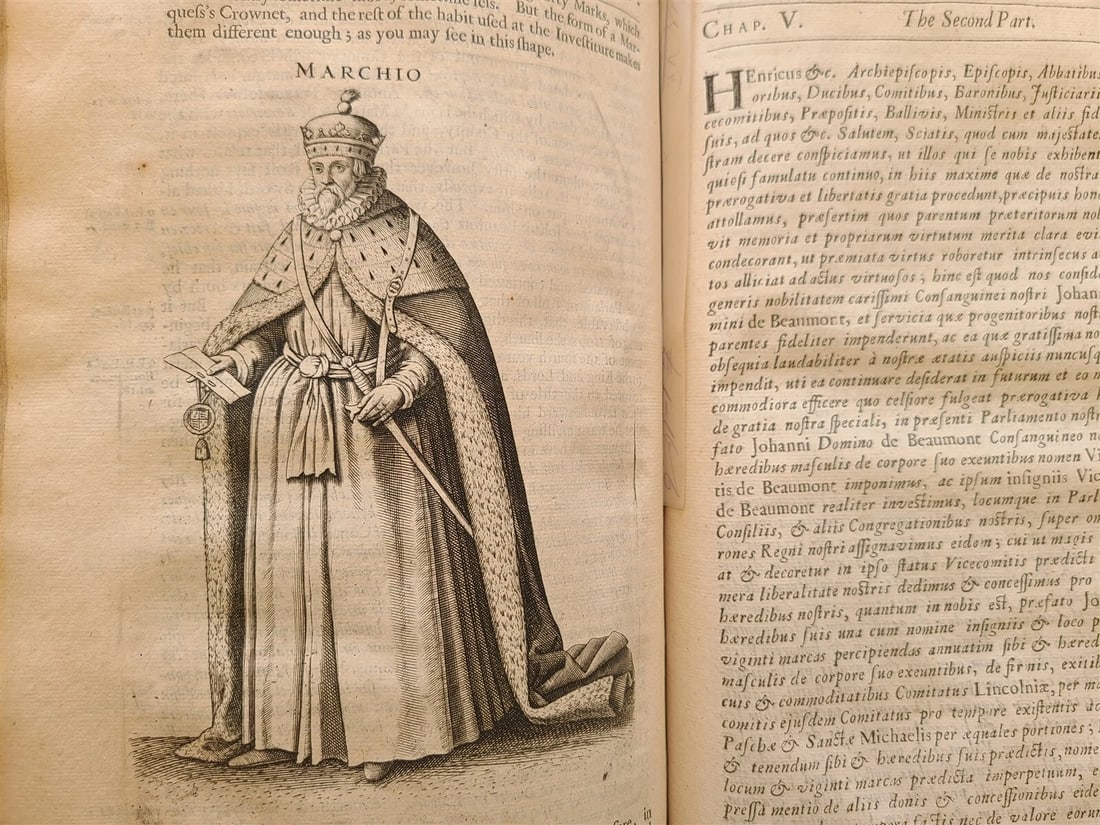 But the form of a Mar-
queſs's Crownet, and the reſt of the habit uſed at the Inveſtiture makes
them different enough; as you may ſee in this ſhape.
MARCHIO
CHAP. V. The Second Part.
HEnricus &c. Archiepiſcopis, Epiſcopis, Abbatibus
oribus, Ducibus, Comitibus, Baronibus, Juſticiarii
cecomitibus, Præpoſitis, Ballivis, Miniſtris et aliis fid
ſuis, ad quos &c. Salutem, Sciatis, quod cum majeſtate
ſtram decere conſpiciamus, ut illos qui ſe nobis exhibent
quieſi famulatu continuo, in hiis maxime quæ de noſtra
prærogativa et libertatis gratia procedunt, præcipuis hono
attollamus, præſertim quos parentum præteritorum nob
vit memoria et propriarum virtutum merita clara evi
condecorant, ut præmiata virtus roboretur intrinſecus a
tos alliciat ad actus virtuoſos; hinc eſt quod nos conſide
generis nobilitatem cariſſimi Conſanguinei noſtri Johann
mini de Beaumont, et ſervicia quæ progenitoribus noſt
parentes fideliter impenderunt, ac ea quæ gratiſſima no
obſequia laudabiliter à noſtræ ætatis auſpiciis nuncuſq
impendit, uti ea continuare deſiderat in futurum et eo n
commodiora efficere quo celſiore fulgeat prærogativa h
de gratia noſtra ſpeciali, in præſenti Parliamento noſtr
fato Johanni Domino de Beaumont Conſanguineo no
hæredibus maſculis de corpore ſuo exeuntibus nomen Vi
tis de Beaumont imponimus, ac ipſum inſigniis Vic
de Beaumont realiter inveſtimus, locumque in Parl
Conſiliis, & aliis Congregationibus noſtris, ſuper om
rones Regni noſtri aſſignavimus eidem; cui ut magis
at & decoretur in ipſo ſtatus Vicecomitis prædicti
mera liberalitate noſtris dedimus & conceſſimus pro
hæredibus noſtris, quantum in nobis eſt, præfato Jo
hæredibus ſuis una cum nomine inſigniis & loco p
viginti marcas percipiendas annuatim ſibi & hæred
maſculis de corpore ſuo exeuntibus, de firnis, exitib
cuis & commoditatibus Comitatus Lincolniæ, per ma
comitis ejuſdem Comitatus pro tempore exiſtentis ad
Paſchæ & Sanctæ Michaelis per æquales portiones;
& tenendum ſibi & hæredibus ſuis prædictis, nome
locum & viginti marcas prædicta imperpetuum, e
preſſa mentio de aliis donis & conceſſionibus eide
factis nec de valore eorum